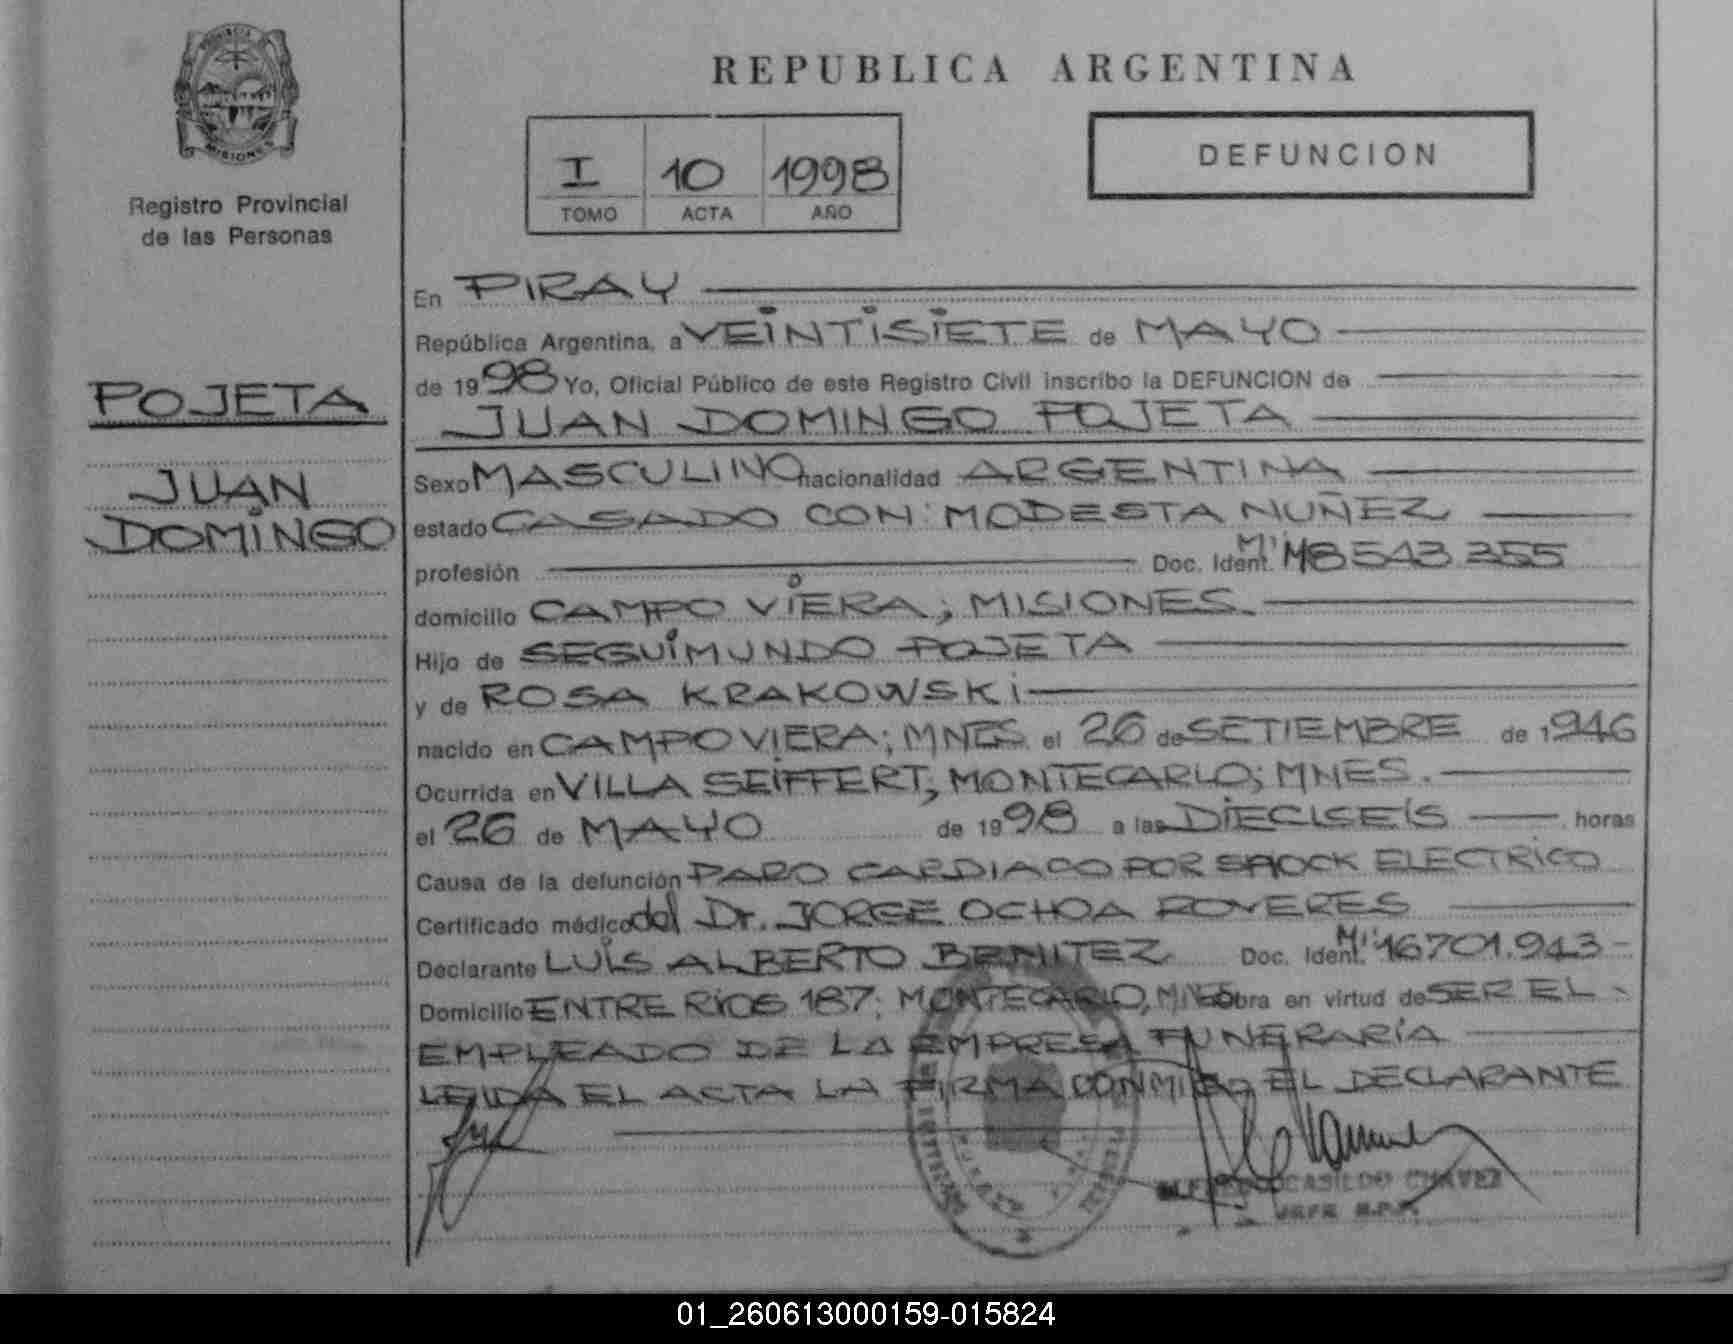 PROVINCIA
MISIONES
Registro Provincial
de las Personas
POJETA
JUAN
DOMINGO
REPUBLICA ARGENTINA
I 10 1998
TOMO ACTA AÑO
DEFUNCION
En PIRAY
República Argentina, a VEINTISIETE de MAYO
de 1998 Yo, Oficial Público de este Registro Civil inscribo la DEFUNCION de
JUAN DOMINGO POJETA
Sexo MASCULINO nacionalidad ARGENTINA
estado CASADO CON: MODESTA NUÑEZ
profesión Doc. Ident. M' M8 543 355
domicilio CAMPO VIERA; MISIONES.
Hijo de SEGUIMUNDO POJETA
y de ROSA KRAKOWSKI
nacido en CAMPO VIERA; MNES el 26 de SETIEMBRE de 1946
Ocurrida en VILLA SEIFFERT, MONTECARLO; MNES.
el 26 de MAYO de 1998 a las DIECISEIS horas
Causa de la defunción PARO CARDIACO POR SHOCK ELECTRICO
Certificado médico del Dr. JORGE OCHOA ROVERES
Declarante LUIS ALBERTO BENITEZ Doc. Ident. M' 16701.943-
Domicilio ENTRE RIOS 187; MONTECARLO, MNES obra en virtud de SER EL
EMPLEADO DE LA EMPRESA FUNERARIA
LEIDA EL ACTA LA FIRMA CONMIGO EL DECLARANTE
CASILDO CHAVEZ
JEFE R.P.P.
01_260613000159-015824